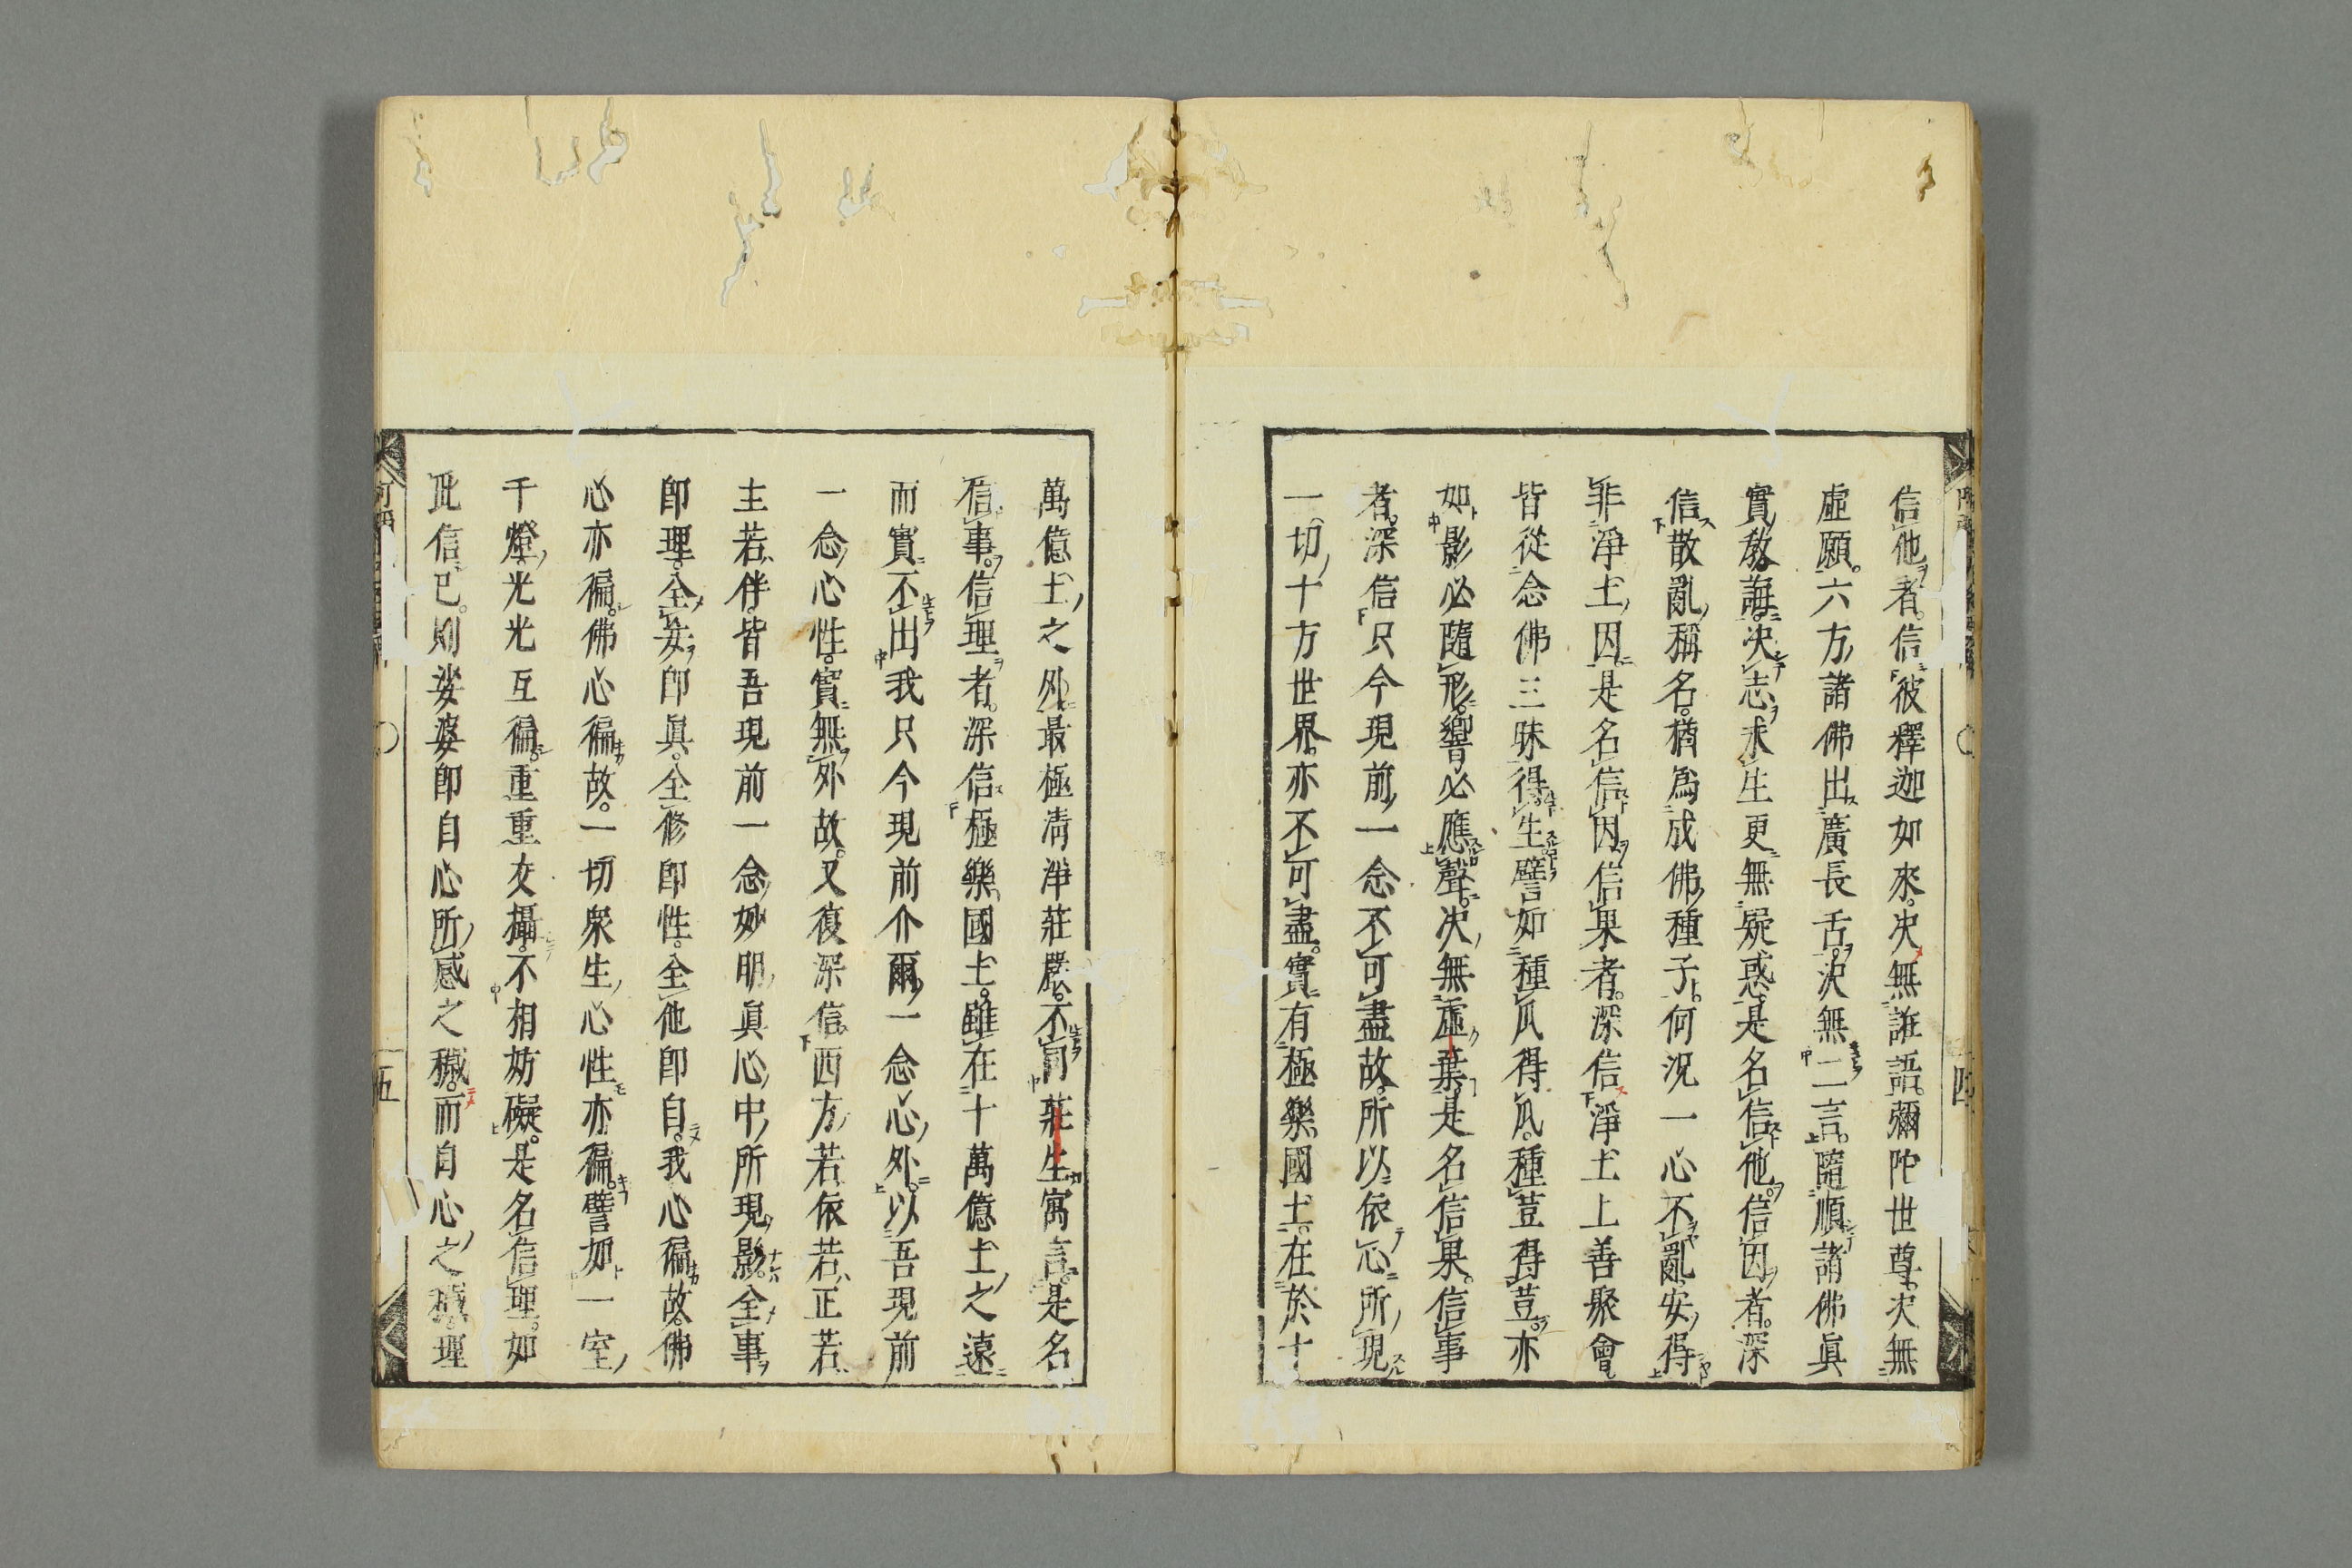 信他者。信彼釋迦如來。決無誑語。彌陀世尊。決無
虛願。六方諸佛出廣長舌。決無二言。隨順諸佛眞
實教誨。決志求生更無疑惑。是名信他。信因者。深
信散亂稱名。猶爲成佛種子。何況一心不亂。安得
非淨土因。是名信因。信果者。深信淨土上善聚會
皆從念佛三昧得生。譬如種瓜得瓜。種荳得荳。亦
如影必隨形。響必應聲。決無虛棄。是名信果。信事
者。深信只今現前一念不可盡故。所以依心所現
一切十方世界。亦不可盡。實有極樂國土。在於十
萬億土之外。最極淸淨莊嚴。不同莊生寓言。是名
信事。信理者。深信極樂國土。雖在十萬億土之遠
而實不出我只今現前介爾一念心外。以吾現前
一念心性。實無外故。又復深信。西方若依若正若
主若伴。皆吾現前一念妙明眞心中所現影。全事
卽理。全妄卽眞。全修卽性。全他卽自。我心徧故。佛
心亦徧。佛心徧故。一切衆生心性亦徧。譬如一室
千燈。光光互徧。重重交攝。不相妨礙。是名信理。如
此信已。則娑婆卽自心所感之穢。而自心之穢。理
四
五